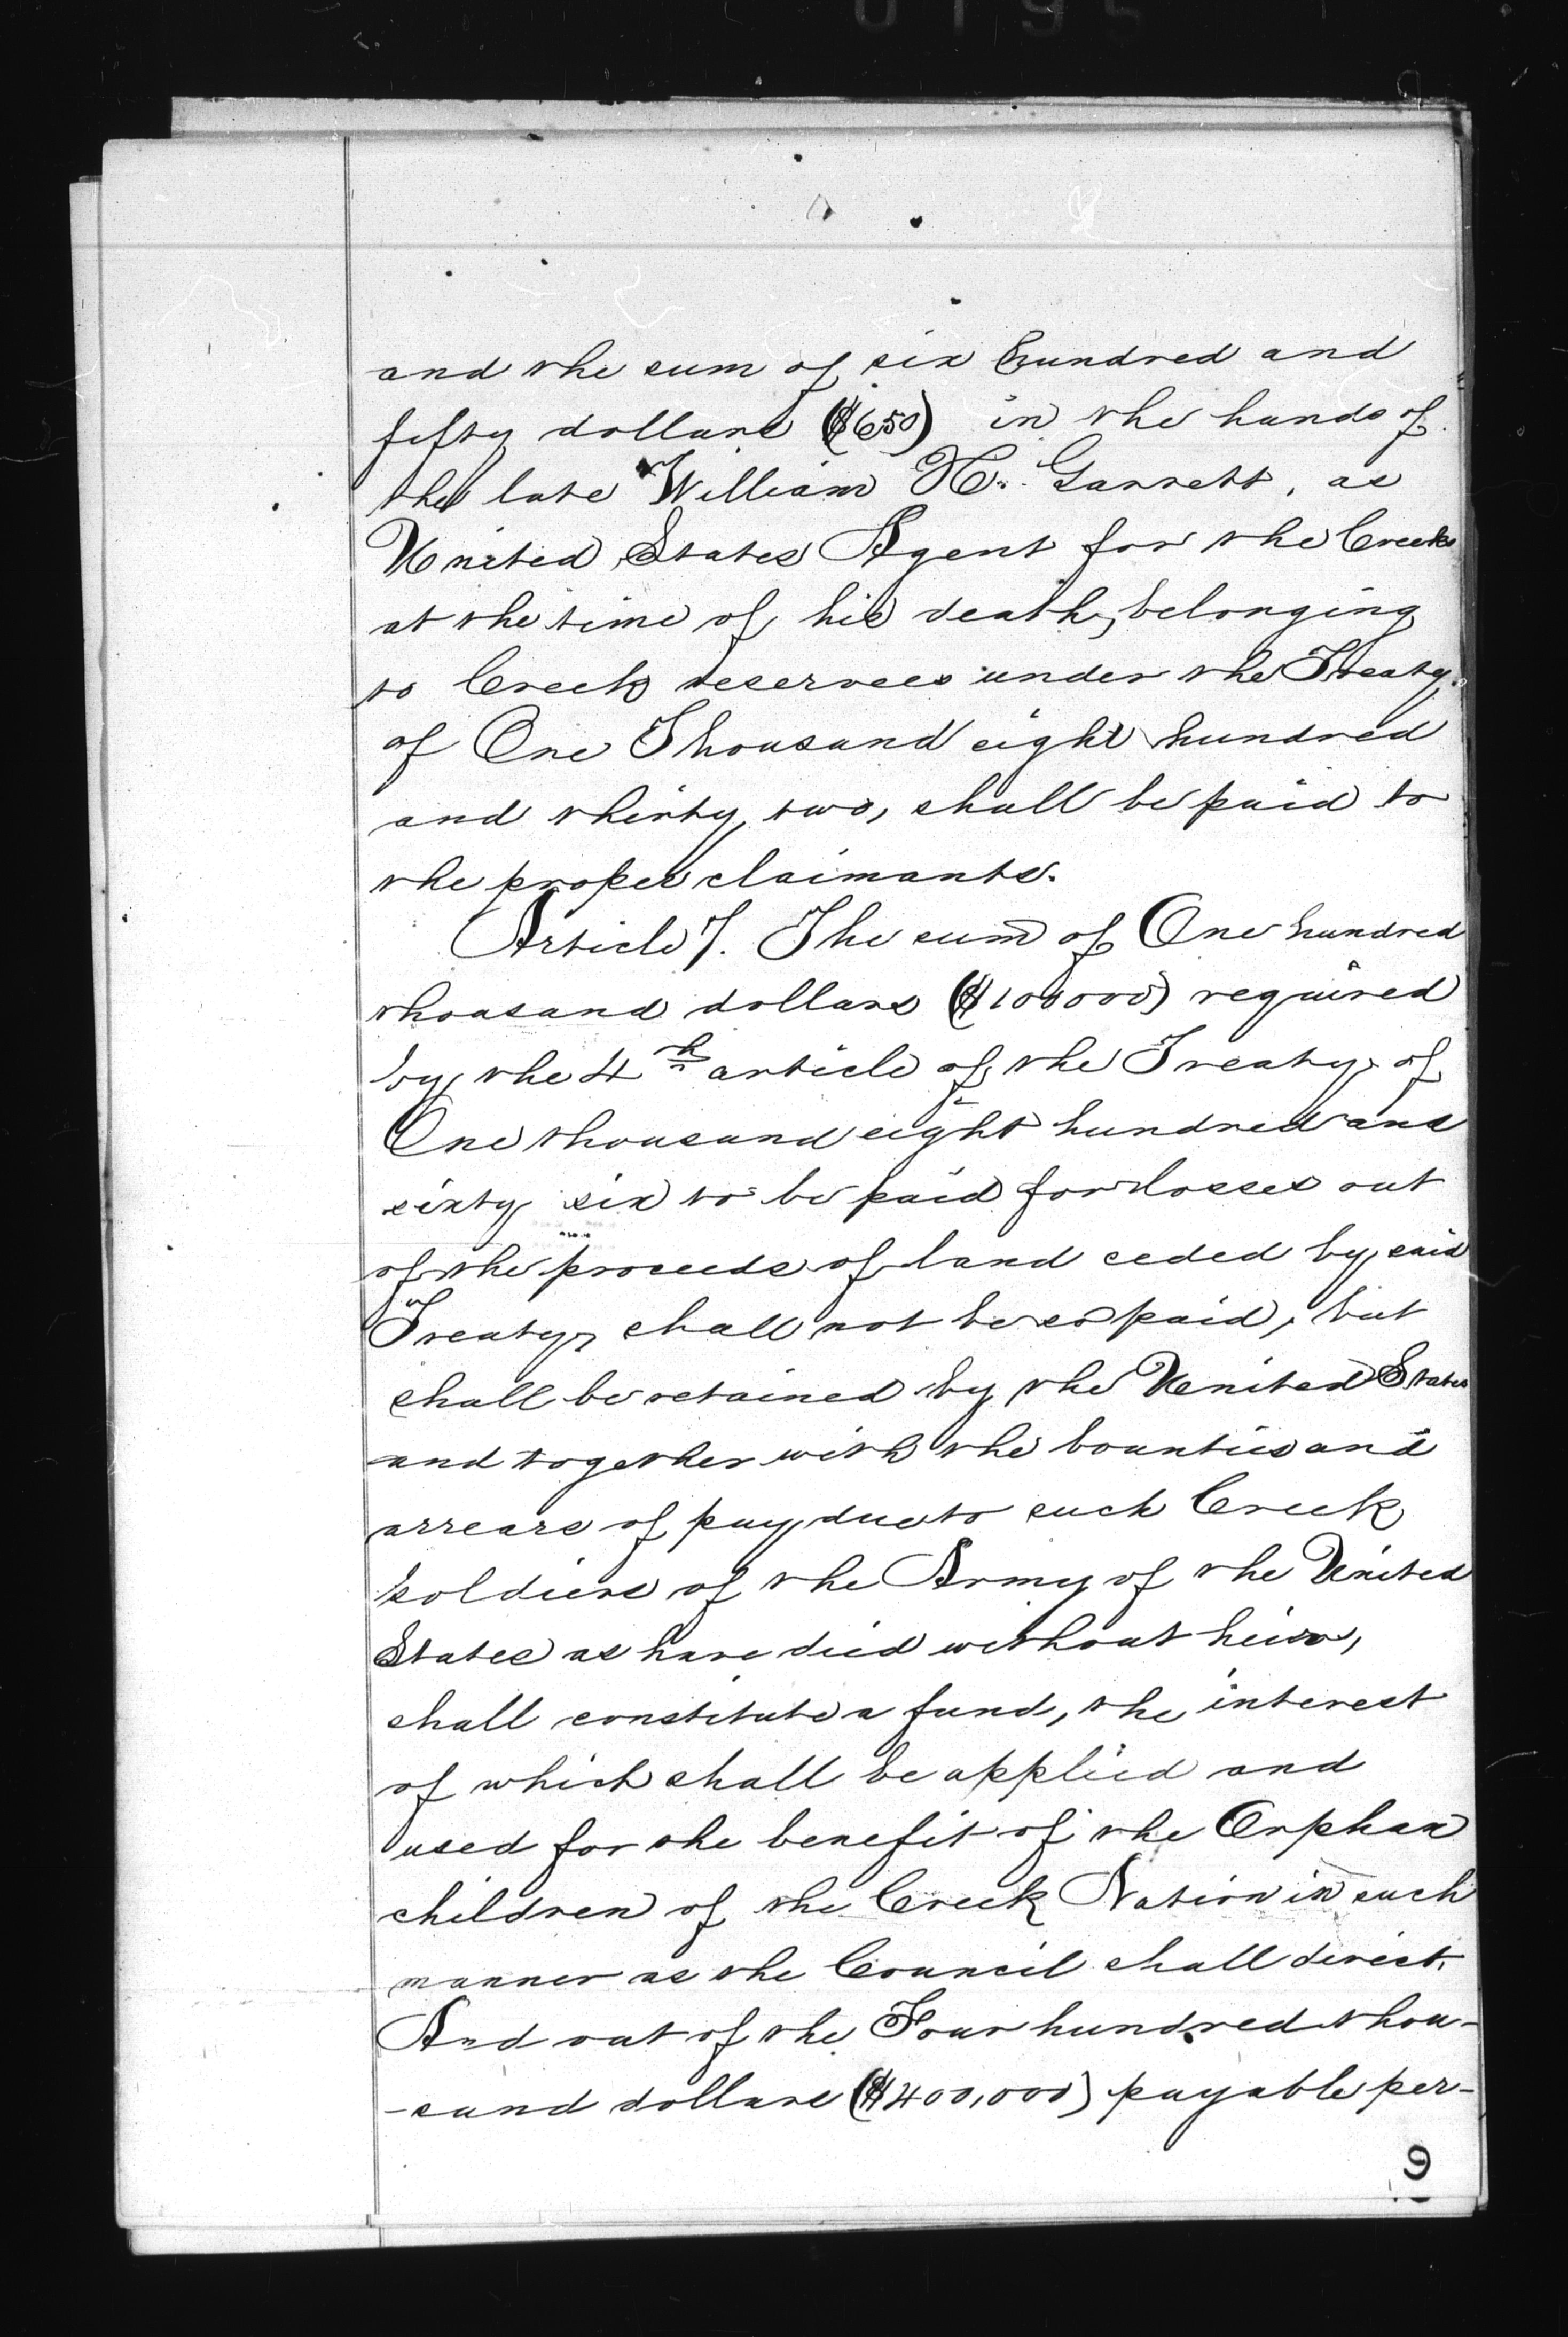 0195
and the sum of six hundred and
fifty dollars ($650) in the hands of
the late William H. Garrett, as
United States Agent for the Creeks
at the time of his death, belonging
to Creek reserves under the Treaty
of One Thousand eight hundred
and thirty two, shall be paid to
the proper claimants.
Article 7. The sum of One hundred
thousand dollars ($100000) required
by the 4th article of the Treaty of
One thousand eight hundred and
sixty six to be paid for losses out
of the proceeds of land ceded by said
Treaty, shall not be so paid, but
shall be retained by the United States
and together with the bounties and
arrears of pay due to such Creek
soldiers of the Army of the United
States as have died without heirs,
shall constitute a fund, the interest
of which shall be applied and
used for the benefit of the Orphan
children of the Creek Nation in such
manner as the Council shall direct.
And out of the Four hundred thou-
-sand dollars ($400,000) payable per-
9